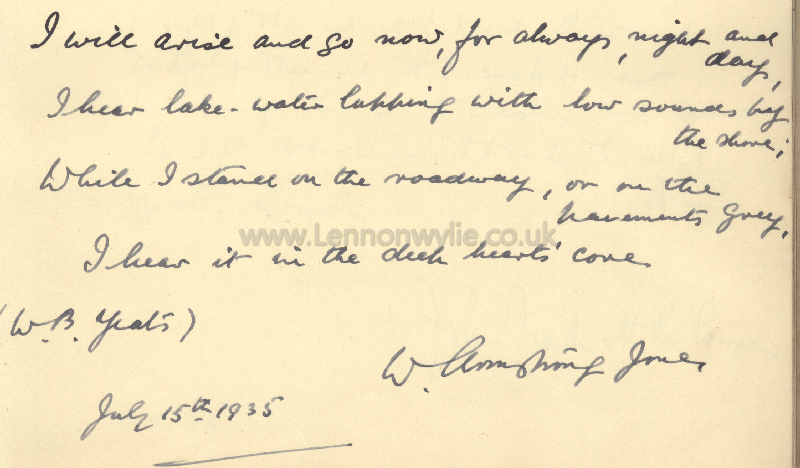 I will arise and go now, for always, night and
day,
I hear lake-water lapping with low sounds by
the shore;
While I stand on the roadway, or on the
pavements grey,
www.Lennonwylie.co.uk
I hear it in the deep hearts' core
(W.B. Yeats)
W. Armstrong Jones
July 15th 1935